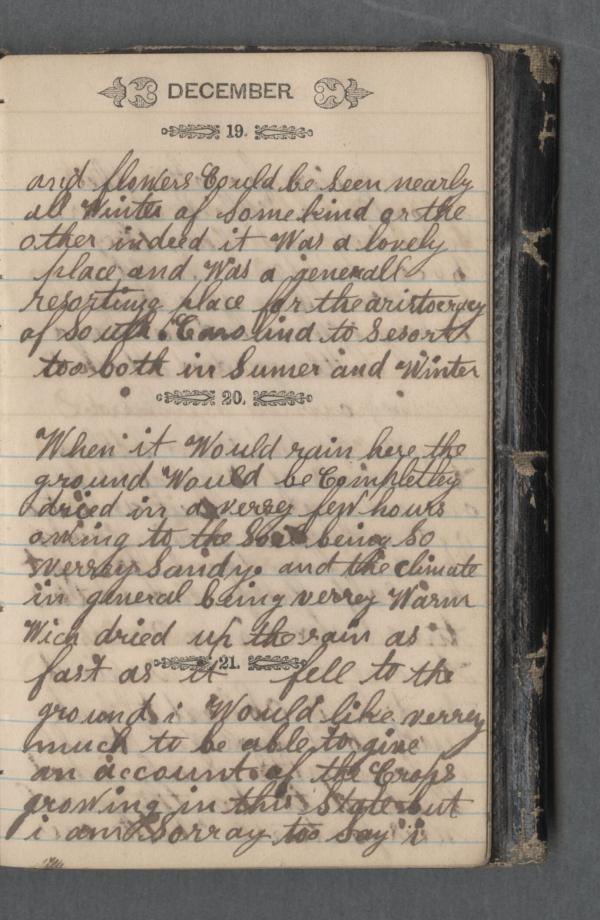 DECEMBER
19.
and flowers Could be Seen nearly
all Winter of Some kind or the
other indeed it Was a lovely
place and Was a generall
resorting place for the aristocracy
of South Carolina to Sesort
too both in Sumer and Winter
20.
When it Would rain here the
ground Would be Completley
dried in a verrey few hours
owing to the Soil being So
verrey Sandy. and the climate
in general being verrey Warm
Wich dried up the rain as
21.
fast as it fell to the
ground i Would like verrey
much to be able to give
an account of the Crops
growing in this State but
i am Sorray too Say i